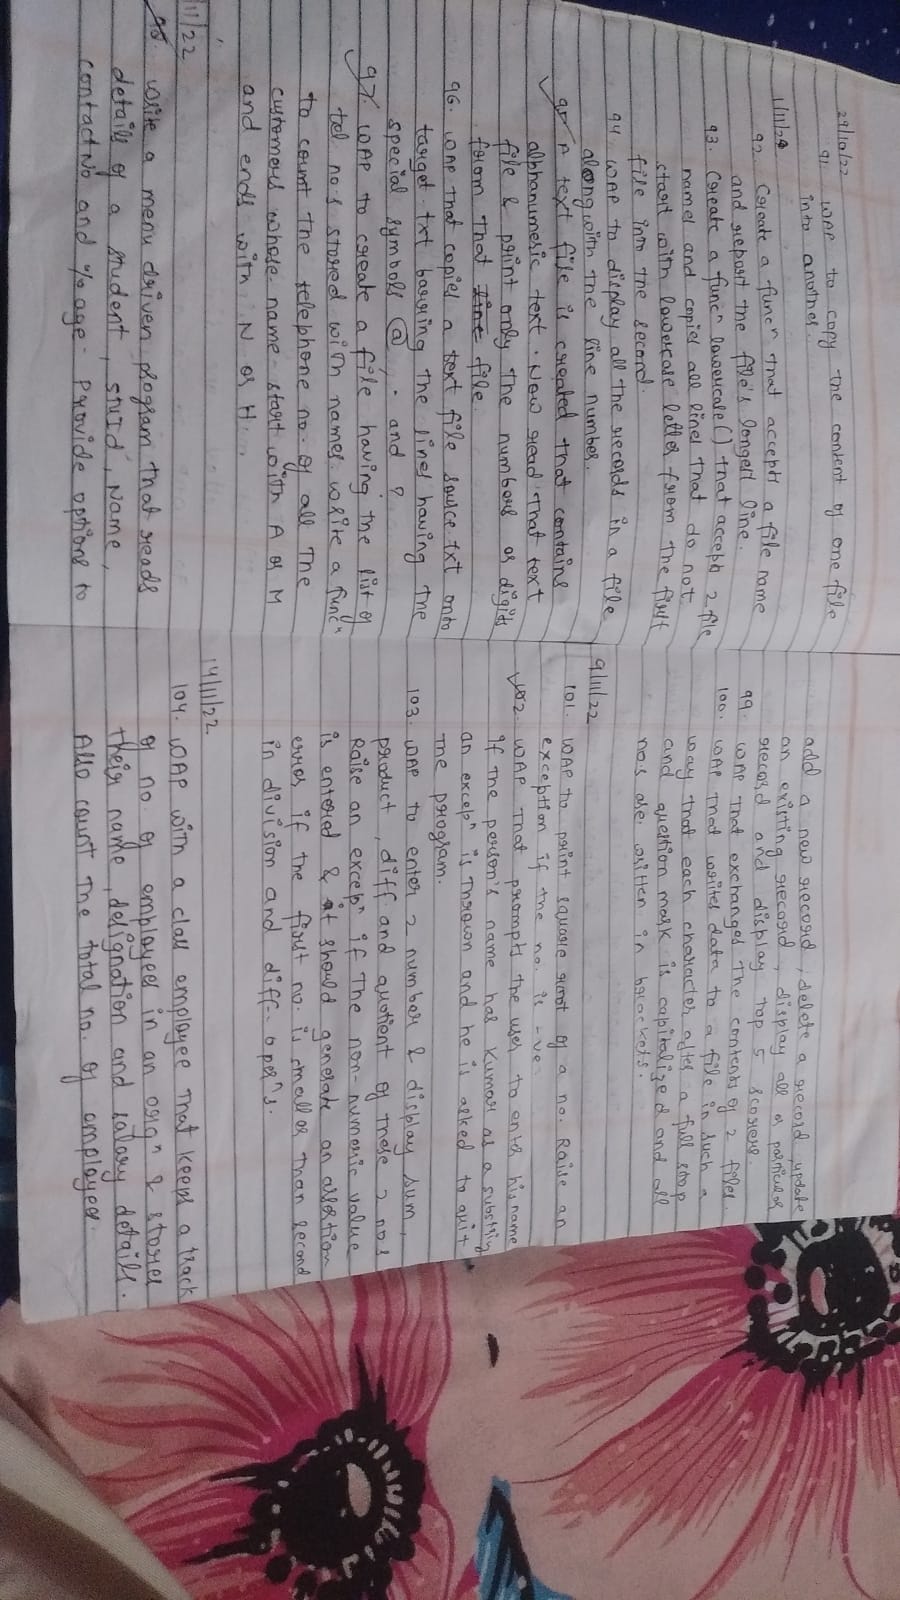 29/10/22
91. WAP to copy the content of one file
into another.
1/11/22
92. Create a funcⁿ that accepts a file name
and report the file's longest line.
93. Create a funcⁿ lowercase() that accepts 2 file
names and copies all lines that do not
start with lowercase letter from the first
file into the second.
94. WAP to display all the records in a file
along with the line number.
95. A text file is created that contains
alphanumeric text. Now read that text
file & print only the numbers or digits
from that file.
96. WAP that copies a text file source.txt onto
target.txt barring the lines having the
special symbols @, . and ?
97. WAP to create a file having the list of
tel. no.s stored with names. write a funcⁿ
to count the telephone no. of all the
customers whose name start with A or M
and ends with N or H.
11/22
98. write a menu driven program that reads
details of a student, stuID, Name,
contact No and %age. Provide options to
add a new record, delete a record, update
an existing record, display all or particular
record and display top 5 scorers.
99. WAP that exchanges the contents of 2 files.
100. WAP that writes data to a file in such a
way that each character after a full stop
and question mark is capitalized and all
no.s are written in brackets.
9/11/22
101. WAP to print square root of a no. Raise an
exception if the no. is -ve.
102. WAP that prompts the user to enter his name
If the person's name has Kumar as a substring
an excepⁿ is thrown and he is asked to quit
the program.
103. WAP to enter 2 numbers & display sum,
product, diff. and quotient of these 2 nos
Raise an excepⁿ if the non-numeric value
is entered & it should generate an assertion
error if the first no. is smaller than second
in division and diff. operⁿs.
14/11/22
104. WAP with a class employee that keeps a track
of no. of employees in an orgⁿ & stores
their name, designation and salary details.
Also count the total no. of employees